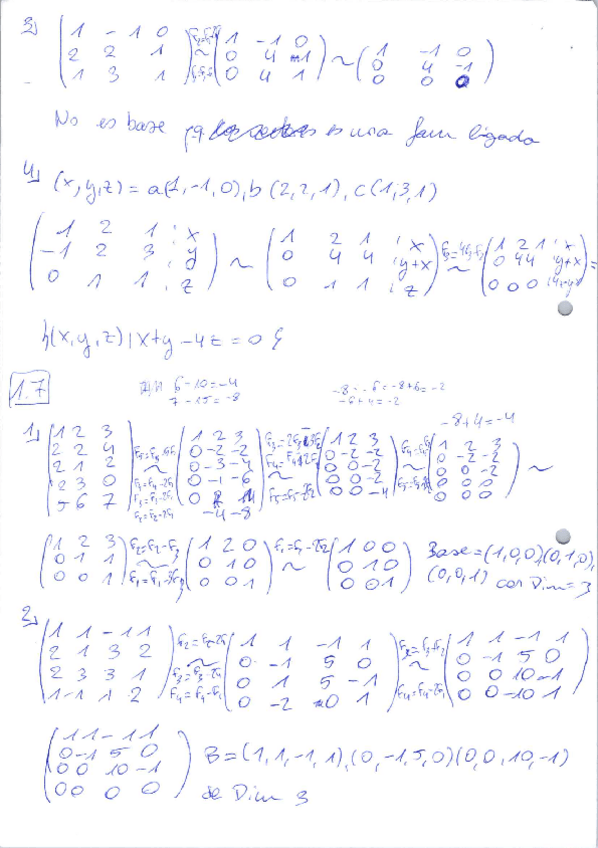 3) (1 -1 0 / 2 2 1 / 1 3 1) ~ (1 -1 0 / 0 4 1 / 0 4 1) ~ (1 -1 0 / 0 4 -1 / 0 0 0)
No es base pq es una fam ligada
4) (x, y, z) = a(1, -1, 0), b(2, 2, 1), c(1, 3, 1)
(1 2 1 ¦ x / -1 2 3 ¦ y / 0 1 1 ¦ z) ~ (1 2 1 ¦ x / 0 4 4 ¦ y+x / 0 1 1 ¦ z) ~ (1 2 1 ¦ x / 0 4 4 ¦ y+x / 0 0 0 ¦) =
{(x, y, z) | x+y-4z = 0}
1.7
6-10=-4
7-15=-8
-8--6=-8+6=-2
-6+4=-2
-8+4=-4
1) (1 2 3 / 2 2 4 / 2 1 2 / 2 3 0 / 5 6 7) ~ (1 2 3 / 0 -2 -2 / 0 -3 -4 / 0 -1 -6 / 0 -4 -8) ~ (1 2 3 / 0 -2 -2 / 0 0 -2 / 0 0 -2 / 0 0 -4) ~ (1 2 3 / 0 -2 -2 / 0 0 -2 / 0 0 0 / 0 0 0) ~
(1 2 3 / 0 1 1 / 0 0 1) F2=F2-F3 F1=F1-3F3 ~ (1 2 0 / 0 1 0 / 0 0 1) F1=F1-2F2 ~ (1 0 0 / 0 1 0 / 0 0 1) Base=(1,0,0)(0,1,0),
(0,0,1) con Dim=3
2) (1 1 -1 1 / 2 1 3 2 / 2 3 3 1 / 1 -1 1 2) F2=F2-2F1 F3=F3-2F1 F4=F4-F1 ~ (1 1 -1 1 / 0 -1 5 0 / 0 1 5 -1 / 0 -2 0 1) F3=F3+F2 F4=F4-2F2 ~ (1 1 -1 1 / 0 -1 5 0 / 0 0 10 -1 / 0 0 -10 1)
(1 1 -1 1 / 0 -1 5 0 / 0 0 10 -1 / 0 0 0 0) B=(1,1,-1,1),(0,-1,5,0)(0,0,10,-1)
de Dim 3